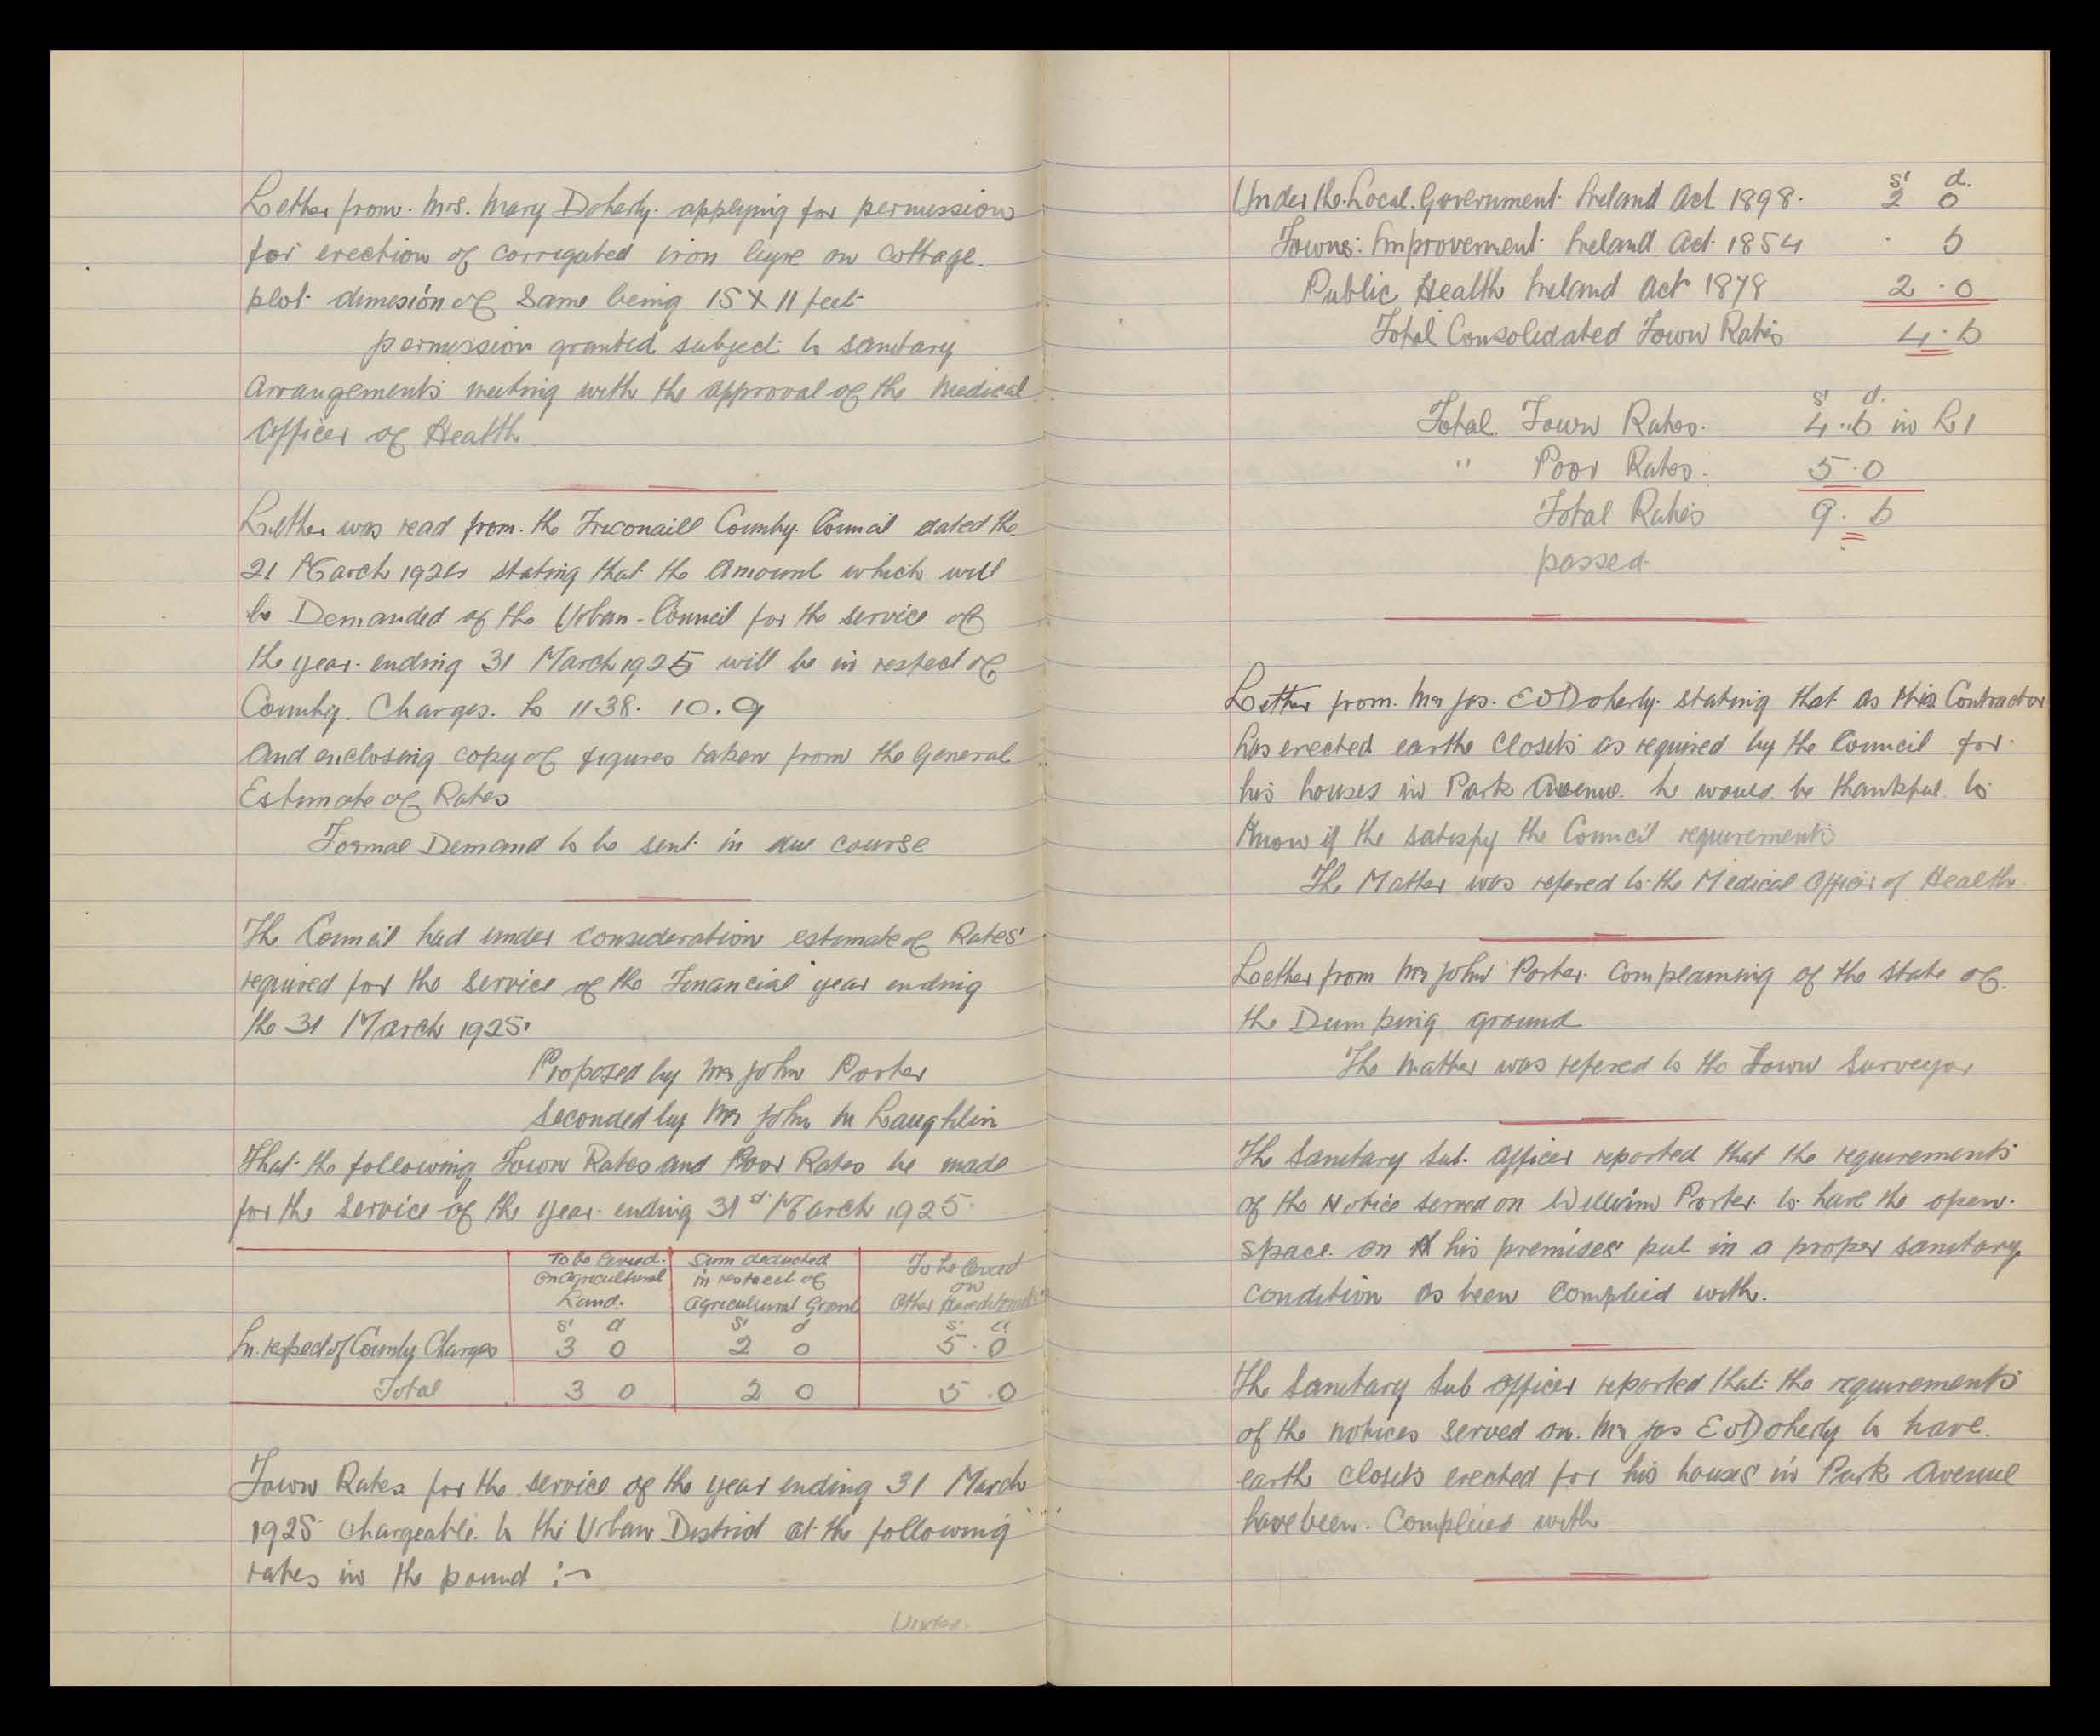 Letter from Mrs. Mary Doherty applying for permission
for erection of corrigated iron byre on cottage
plot dimesion of Same being 15 X 11 feet
permission granted subject to sanitary
Arrangements meeting with the approval of the Medical
Officer of Health
Letter was read from the Tirconaill County Council dated the
21 March 1924 stating that the Amount which will
be Demanded of the Urban-Council for the service of
the year ending 31 March 1925 will be in respect of
County Charges to 1138. 10. 9
And enclosing copy of figures taken from the General
Estimate of Rates
Formal Demand to be sent in due course
The Council had under consideration estimate of Rates
required for the service of the Financial year ending
the 31 March 1925.
Proposed by Mr John Porter
Seconded by Mr John Mc Laughlin
That the following Town Rates and Poor Rates be made
for the Service of the year ending 31st March 1925
To be levied on Agricultural Land.
Sum deducted in respect of Agricultural Grant
To be levied on Other Hereditaments
s d s d s d
In respect of County Charges 3 0 2 0 5.0
Total 3 0 2 0 5.0
Town Rates for the service of the year ending 31 March
1925 Chargeable to the Urban District at the following
rates in the pound :-
Under.
s d.
Under the Local Government Ireland Act 1898. 2 0
Towns Improvement Ireland Act 1854 . 6
Public Health Ireland Act 1878 2.0
Total Consolidated Town Rates 4.6
s d.
Total Town Rates. 4..6 in £1
" Poor Rates. 5.0
Total Rates 9.6
passed
Letter from Mr Jas. E O'Doherty stating that as His Contractor
has erected earth closets as required by the Council for
his houses in Park Avenue he would be thankful to
Know if the satisfy the Council requirements
The Matter was refered to the Medical Officer of Health
Letter from Mr John Porter Complaining of the state of
the Dumping ground
The matter was refered to the Town Surveyor
The Sanitary Sub. Officer reported that the requirements
of the Notice served on William Porter to have the open
space on his premises put in a proper sanitary
condition as been Complied with.
The Sanitary Sub Officer reported that the requirements
of the notices served on Mr Jas E O'Doherty to have
earth closets erected for his houses in Park Avenue
have been Complied with